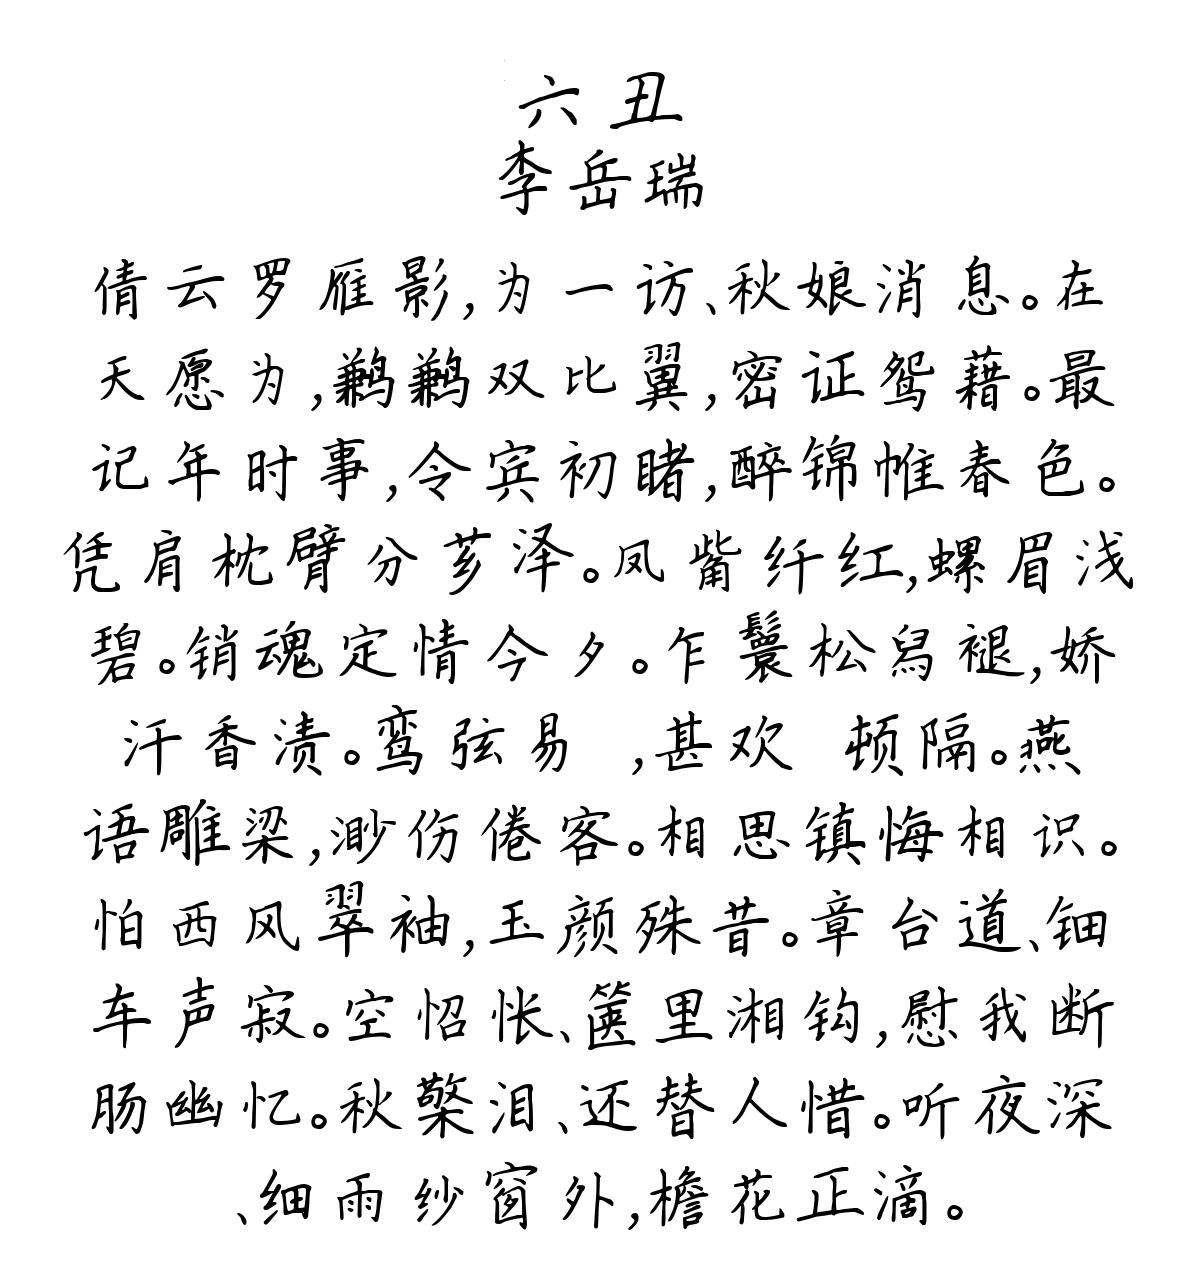 六丑
李岳瑞
倩云罗雁影,为一访、秋娘消息。在
天愿为,鹣鹣双比翼,密证鸳藉。最
记年时事,令宾初睹,醉锦帷春色。
凭肩枕臂分芗泽。凤觜纤红,螺眉浅
碧。销魂定情今夕。乍鬟松舄褪,娇
汗香渍。鸾弦易 ,甚欢 顿隔。燕
语雕梁,渺伤倦客。相思镇悔相识。
怕西风翠袖,玉颜殊昔。章台道、钿
车声寂。空怊怅、箧里湘钩,慰我断
肠幽忆。秋檠泪、还替人惜。听夜深
、细雨纱窗外,檐花正滴。